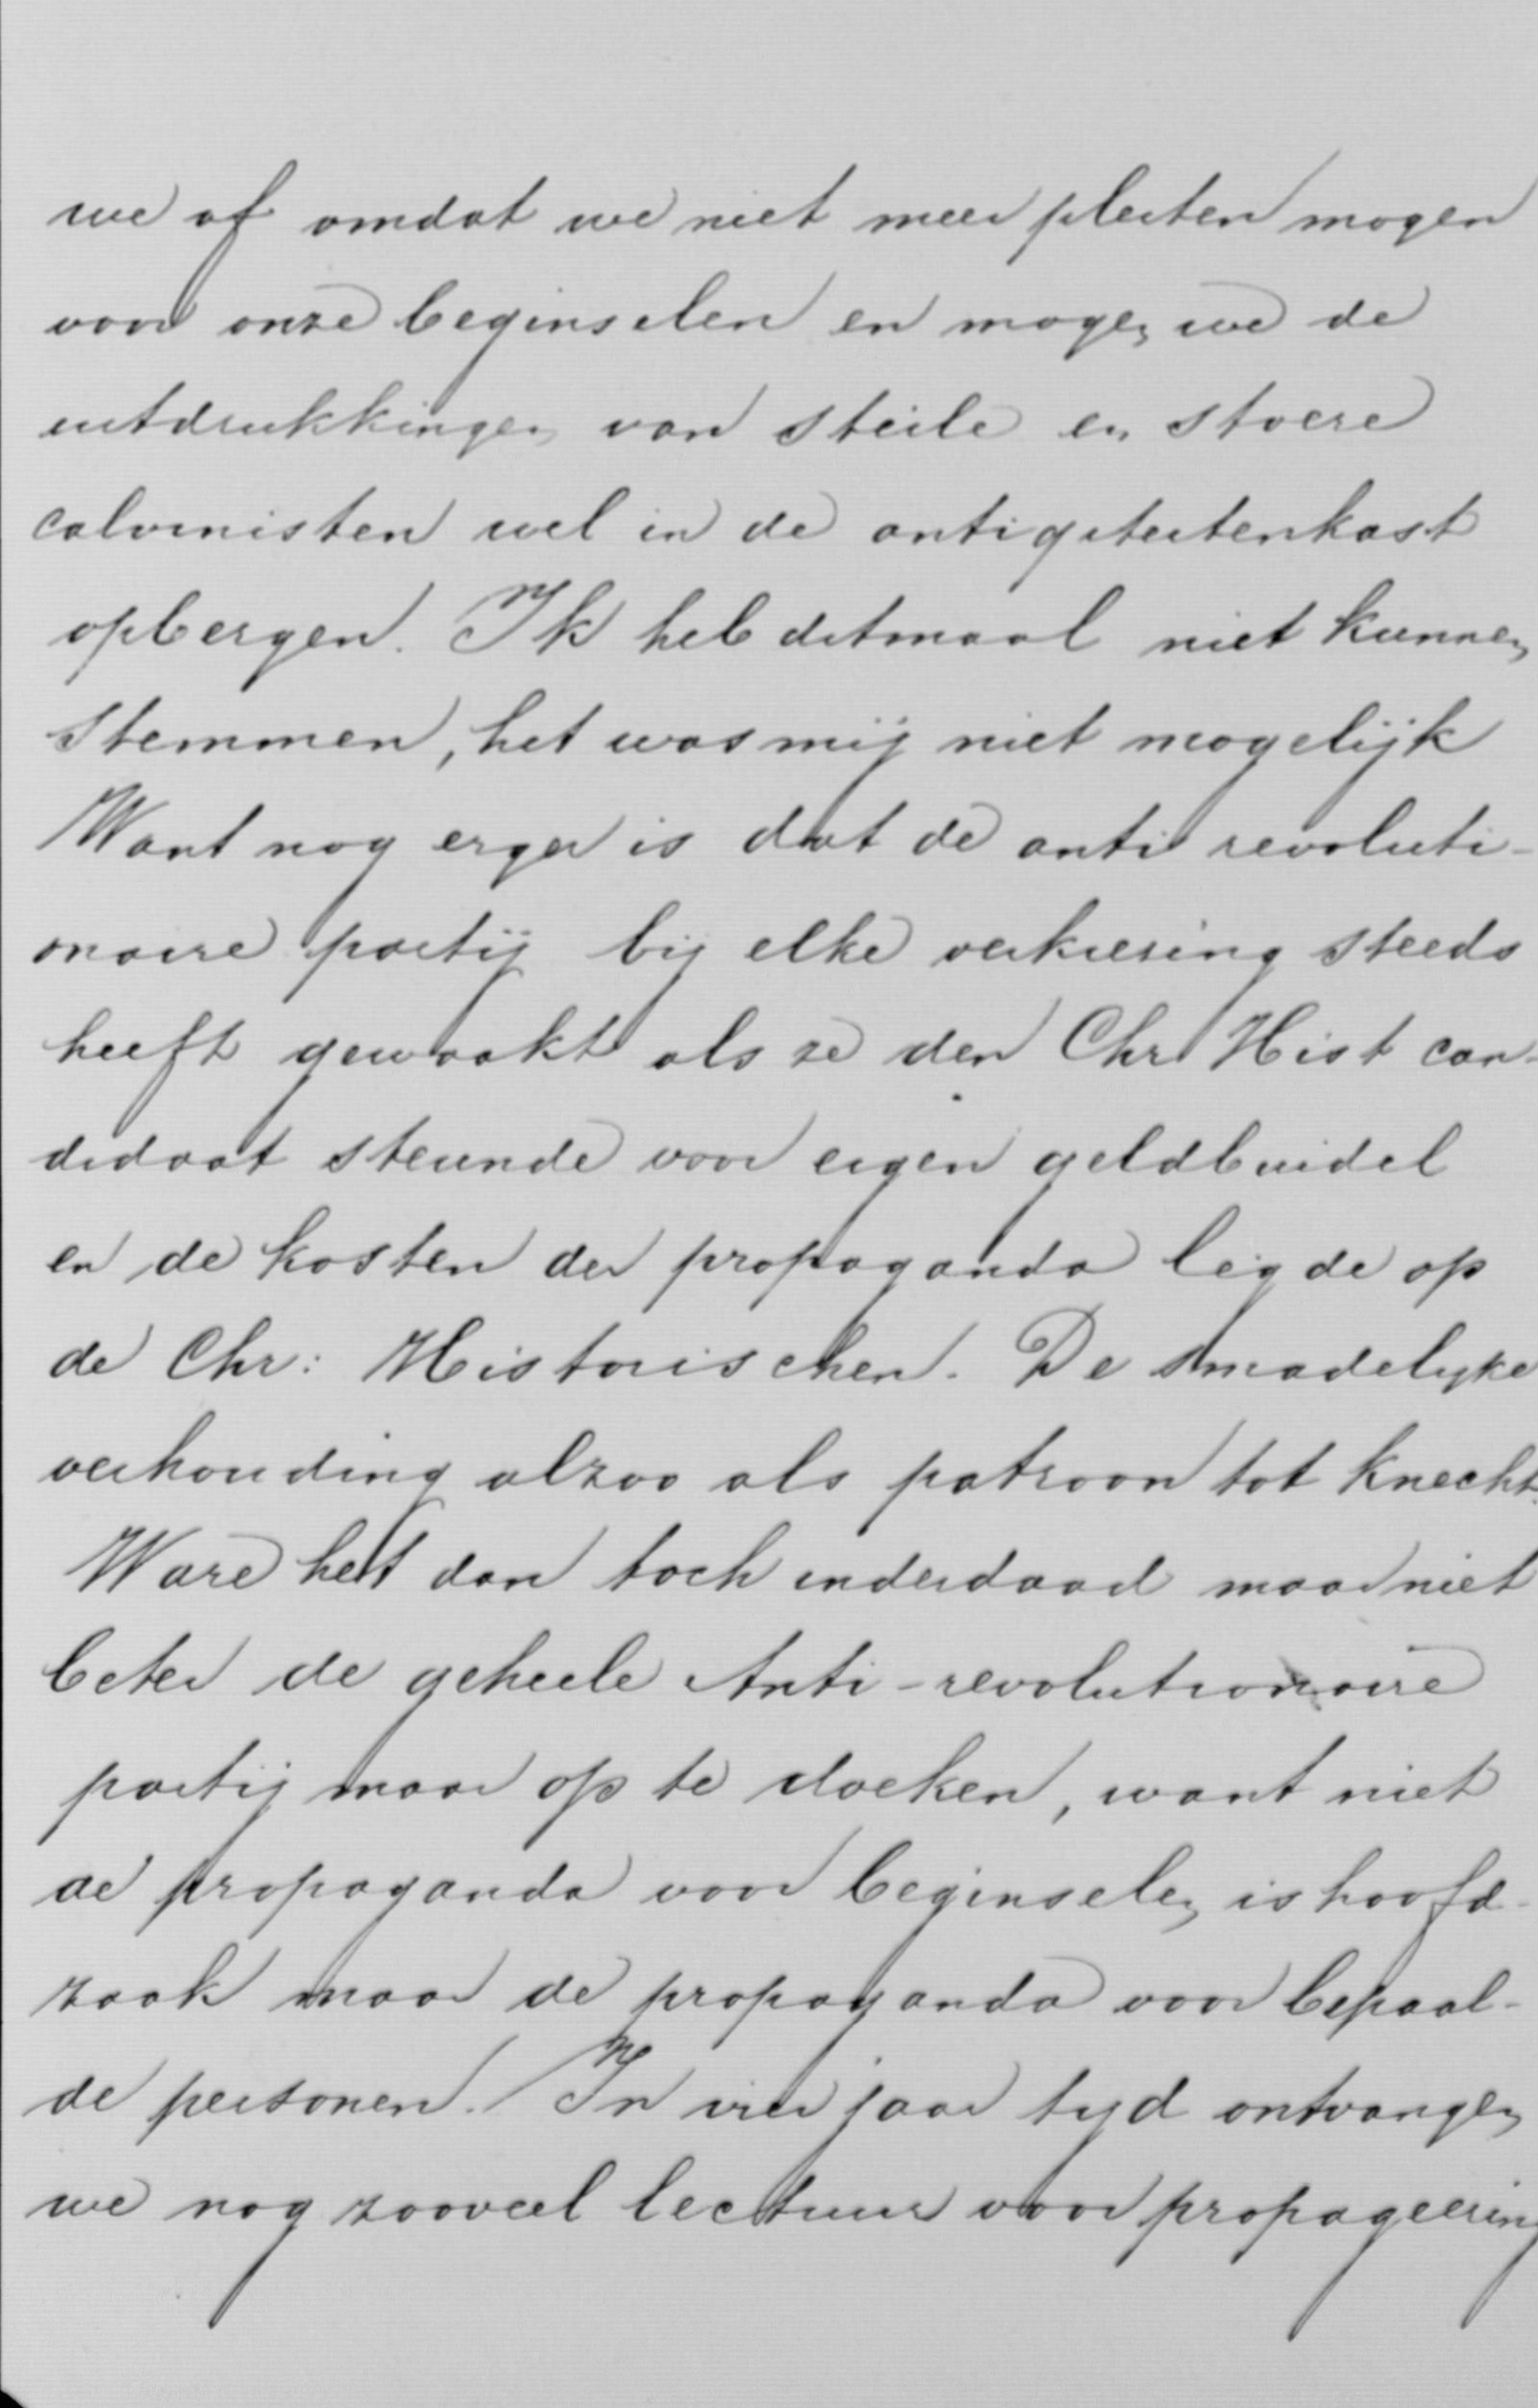 we af omdat we niet meer pleiten mogen
voor onze beginselen en mogen we de
uitdrukkingen van steile en stoere
calvinisten wel in de antiqiteitenkast
opbergen. Ik heb ditmaal niet kunnen
stemmen, het was mij niet mogelijk
Want nog erger is dat de anti revoluti-
onaire partij bij elke verkiezing steeds
heeft gewaakt als ze den Chr Hist can-
didaat steunde voor eigen geldbuidel
en de kosten der propaganda legde op
de Chr: Historischen. De smadelijke
verhouding alzoo als patroon tot knecht.
Ware het dan toch inderdaad maar niet
beter de geheele Anti-revolutionaire
partij maar op te doeken, want niet
de propaganda voor beginselen is hoofd-
zaak maar de propaganda voor bepaal-
de personen. In vier jaar tyd ontvangen
we nog zooveel lectuur voor propageering